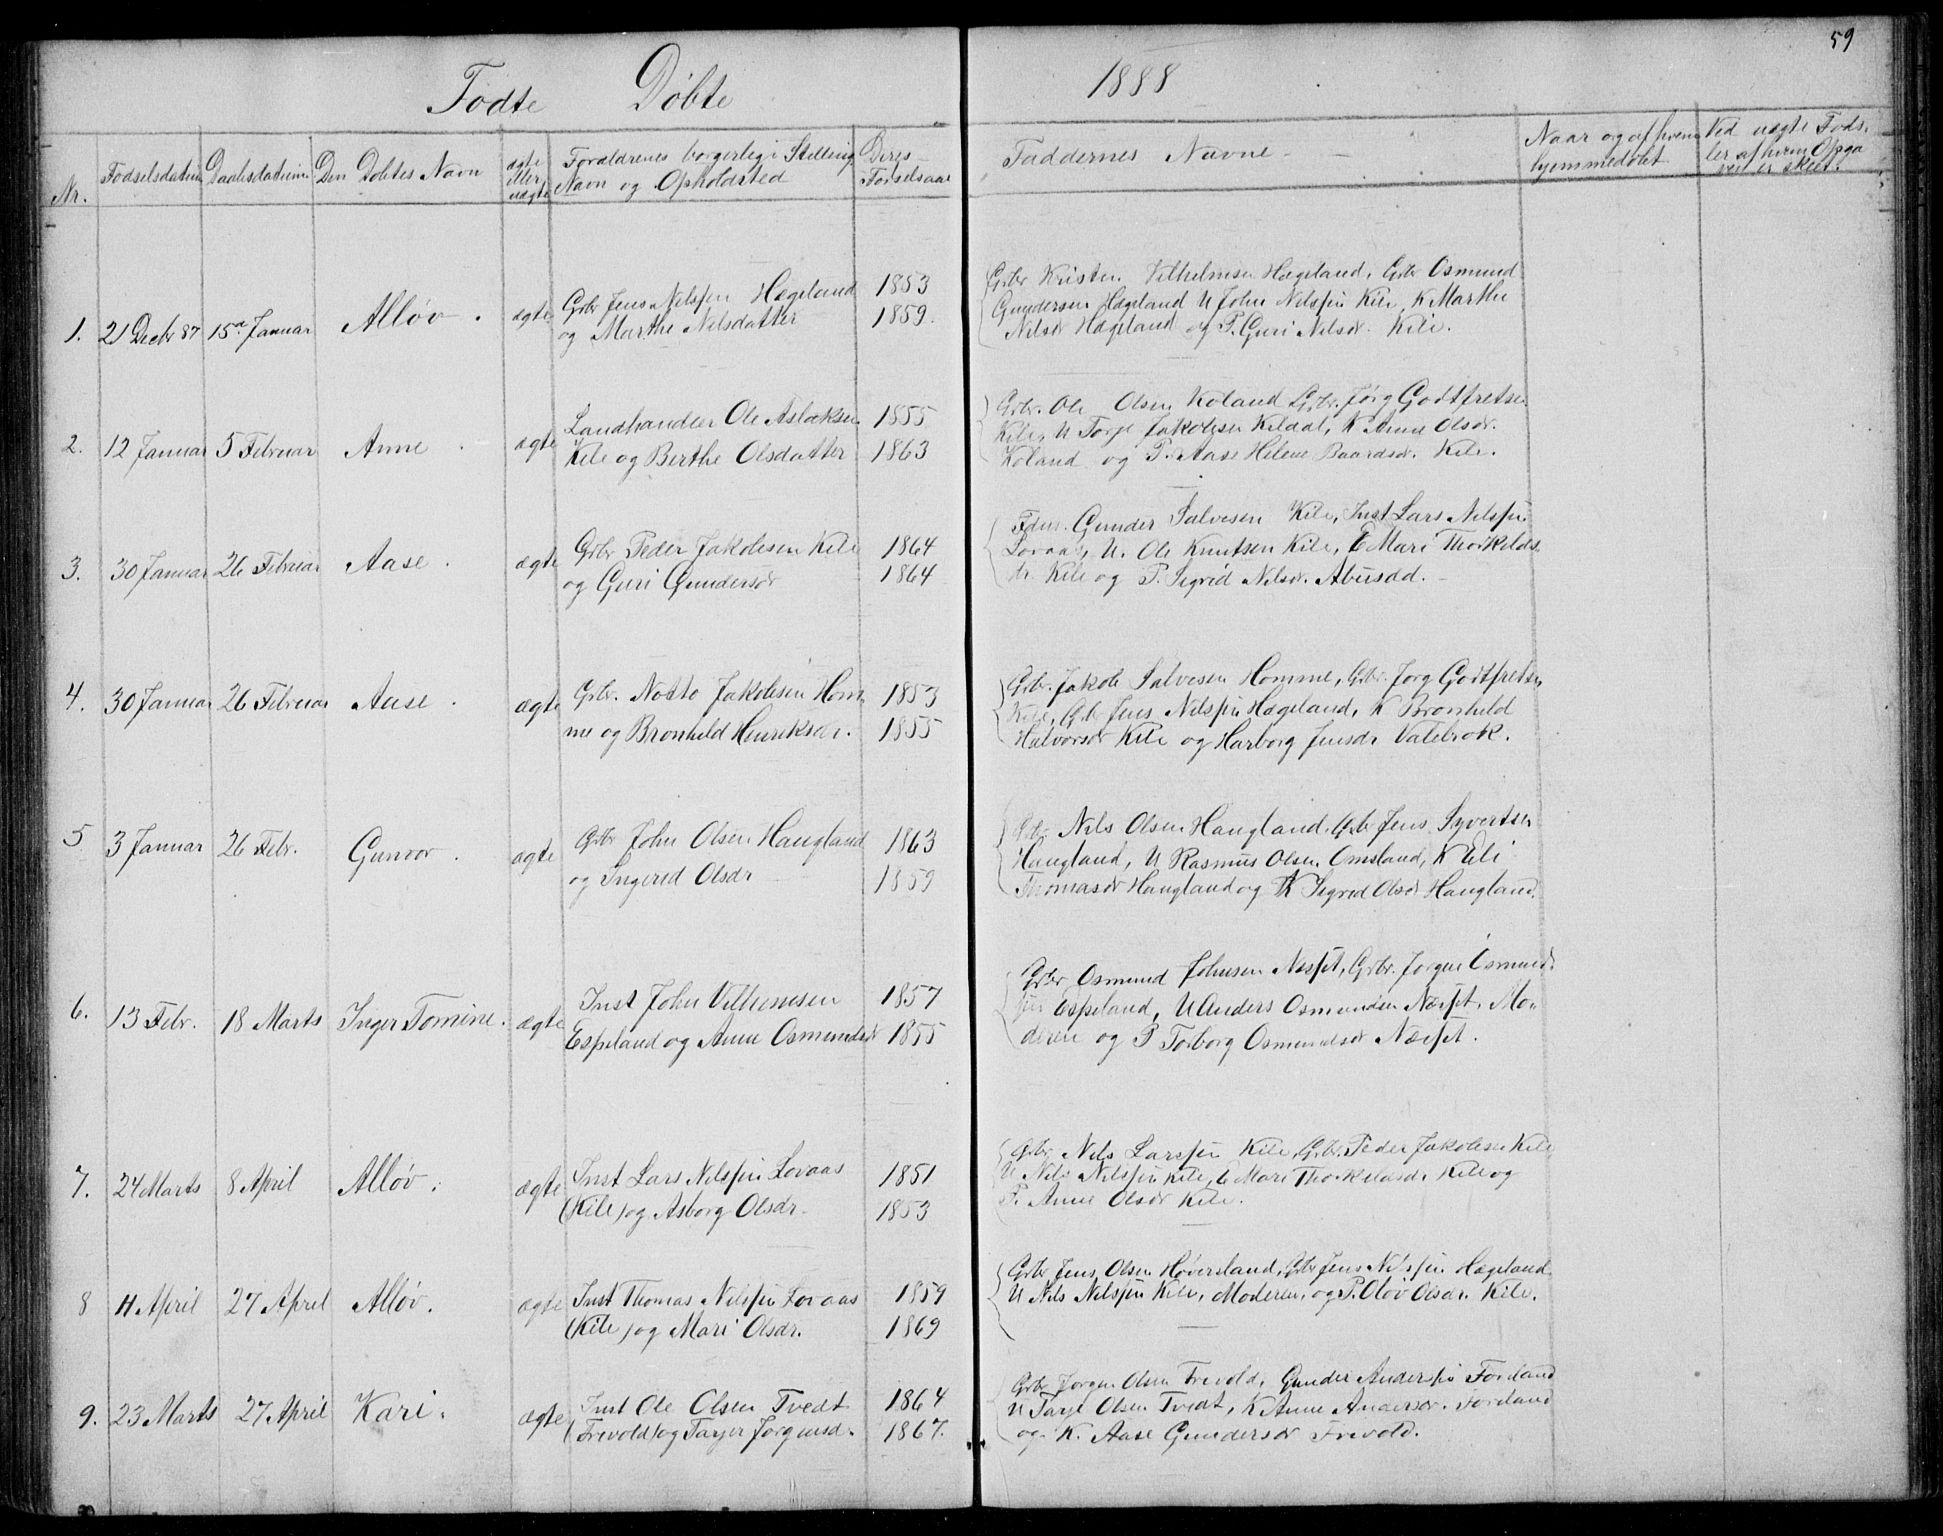 59
Fødte Døbte 1888
Nr. Fødselsdatum Daabsdatum Den Døbtes Navn ægte eller uægte Forældrenes borgerlige Stilling Navn og Opholdsted Deres Fødselsaar Faddernes Navne Naar og af hvem hjemmedøbt Ved uægte Føds-
ler af hvem Opga
ver er skeet.
1. 21 Decbr 87 15de Januar Alløv. ægte
Grbr Jens Nilssen Hægeland 1853
og Marthe Nilsdatter 1859.
Grbr Kristen Vilhelmsen Hægeland, Grbr Osmund
Gundersen Hægeland U John Nilssen Kile, K Marthe
Nilsdr Hægeland og P. Guri Nilsdr. Kile.
2. 12 Januar 5 Februar Anne. ægte
Landhandler Ole Aslaksen 1855
Kile og Berthe Olsdatter 1863
Grbr. Ole Olsen Koland Grbr. Jørg Godtfretsen
Kile, U Torje Jakobsen Kildal, K Anne Olsdr.
Koland og P. Aase Helene Baardsdr. Kile.
3. 30 Januar 26 Februar Aase. ægte
Grbr Peder Jakobsen Kile 1864
og Guri Gundersdr 1864
Gunder Salvesen Kile, Inst Lars Nilssen
Lovaas, U. Ole Knutsen Kile, E Mari Thorkilds-
dr. Kile og P. Sigrid Nilsdr. Abusdal.
4. 30 Januar 26 Februar Aase. ægte
Grbr. Notto Jakobsen Hom- 1853
me og Bronhild Henriksdr. 1855
Grbr. Jakob Salvesen Homme, Grbr. Jørg Godtfretsen
Kile, Grbr Jens Nilssen Hægeland, K Bronhild
Halvorsdr Kile og Harborg Jensdr Vatebrok.
5 3 Januar 26 Febr. Gunvor. ægte
Grbr John Olsen Haugland 1863
og Ingerid Olsdr 1859
Grbr Nils Olsen Haugland, Grbr Jens Syvertsen
Haugland, U Rasmus Olsen Omsland, K Eli
Thomasdr Haugland og K Sigrid Olsdr Haugland.
6. 13 Febr. 18 Marts Inger Tomine. ægte
Inst John Vilhemsen 1857
Espeland og Anne Osmundsdr 1855
Grbr Osmund Johnsen Næsset, Grbr. Jørgen Osmund-
sen Espeland, U Anders Osmundsen Næsset, Mo-
deren og P Torborg Osmundsdr Næsset.
7. 24 Marts 8 April Alløv. ægte
Inst Lars Nilssen Lovaas 1851
(Kile) og Asborg Olsdr. 1853
Grbr Nils Larssen Kile, Grbr. Peder Jakobsen Kile
U Nils Nilssen Kile, E Mari Thorkildsdr Kile og
P. Anne Olsdr Kile.
8 4 April 27 April Alløv. ægte
Inst Thomas Nilssen Lovaas 1859
(Kile) og Mari Olsdr. 1869
Grbr Jens Olsen Høversland, Grbr Jens Nilssen Hægeland
U Nils Nilssen Kile, Moderen, og P. Olov Olsdr. Kile.
9. 23 Marts 27 April Kari. ægte
Inst Ole Olsen Tvedt 1864
(Frevold) og Tarjer Jørgensd. 1867.
Grbr Jørgen Olsen Frevold, Gunder Anderssen Forland
U Tarje Olsen Tvedt, K Anne Andersdr. Forland
og K. Aase Gundersdr Frevold.